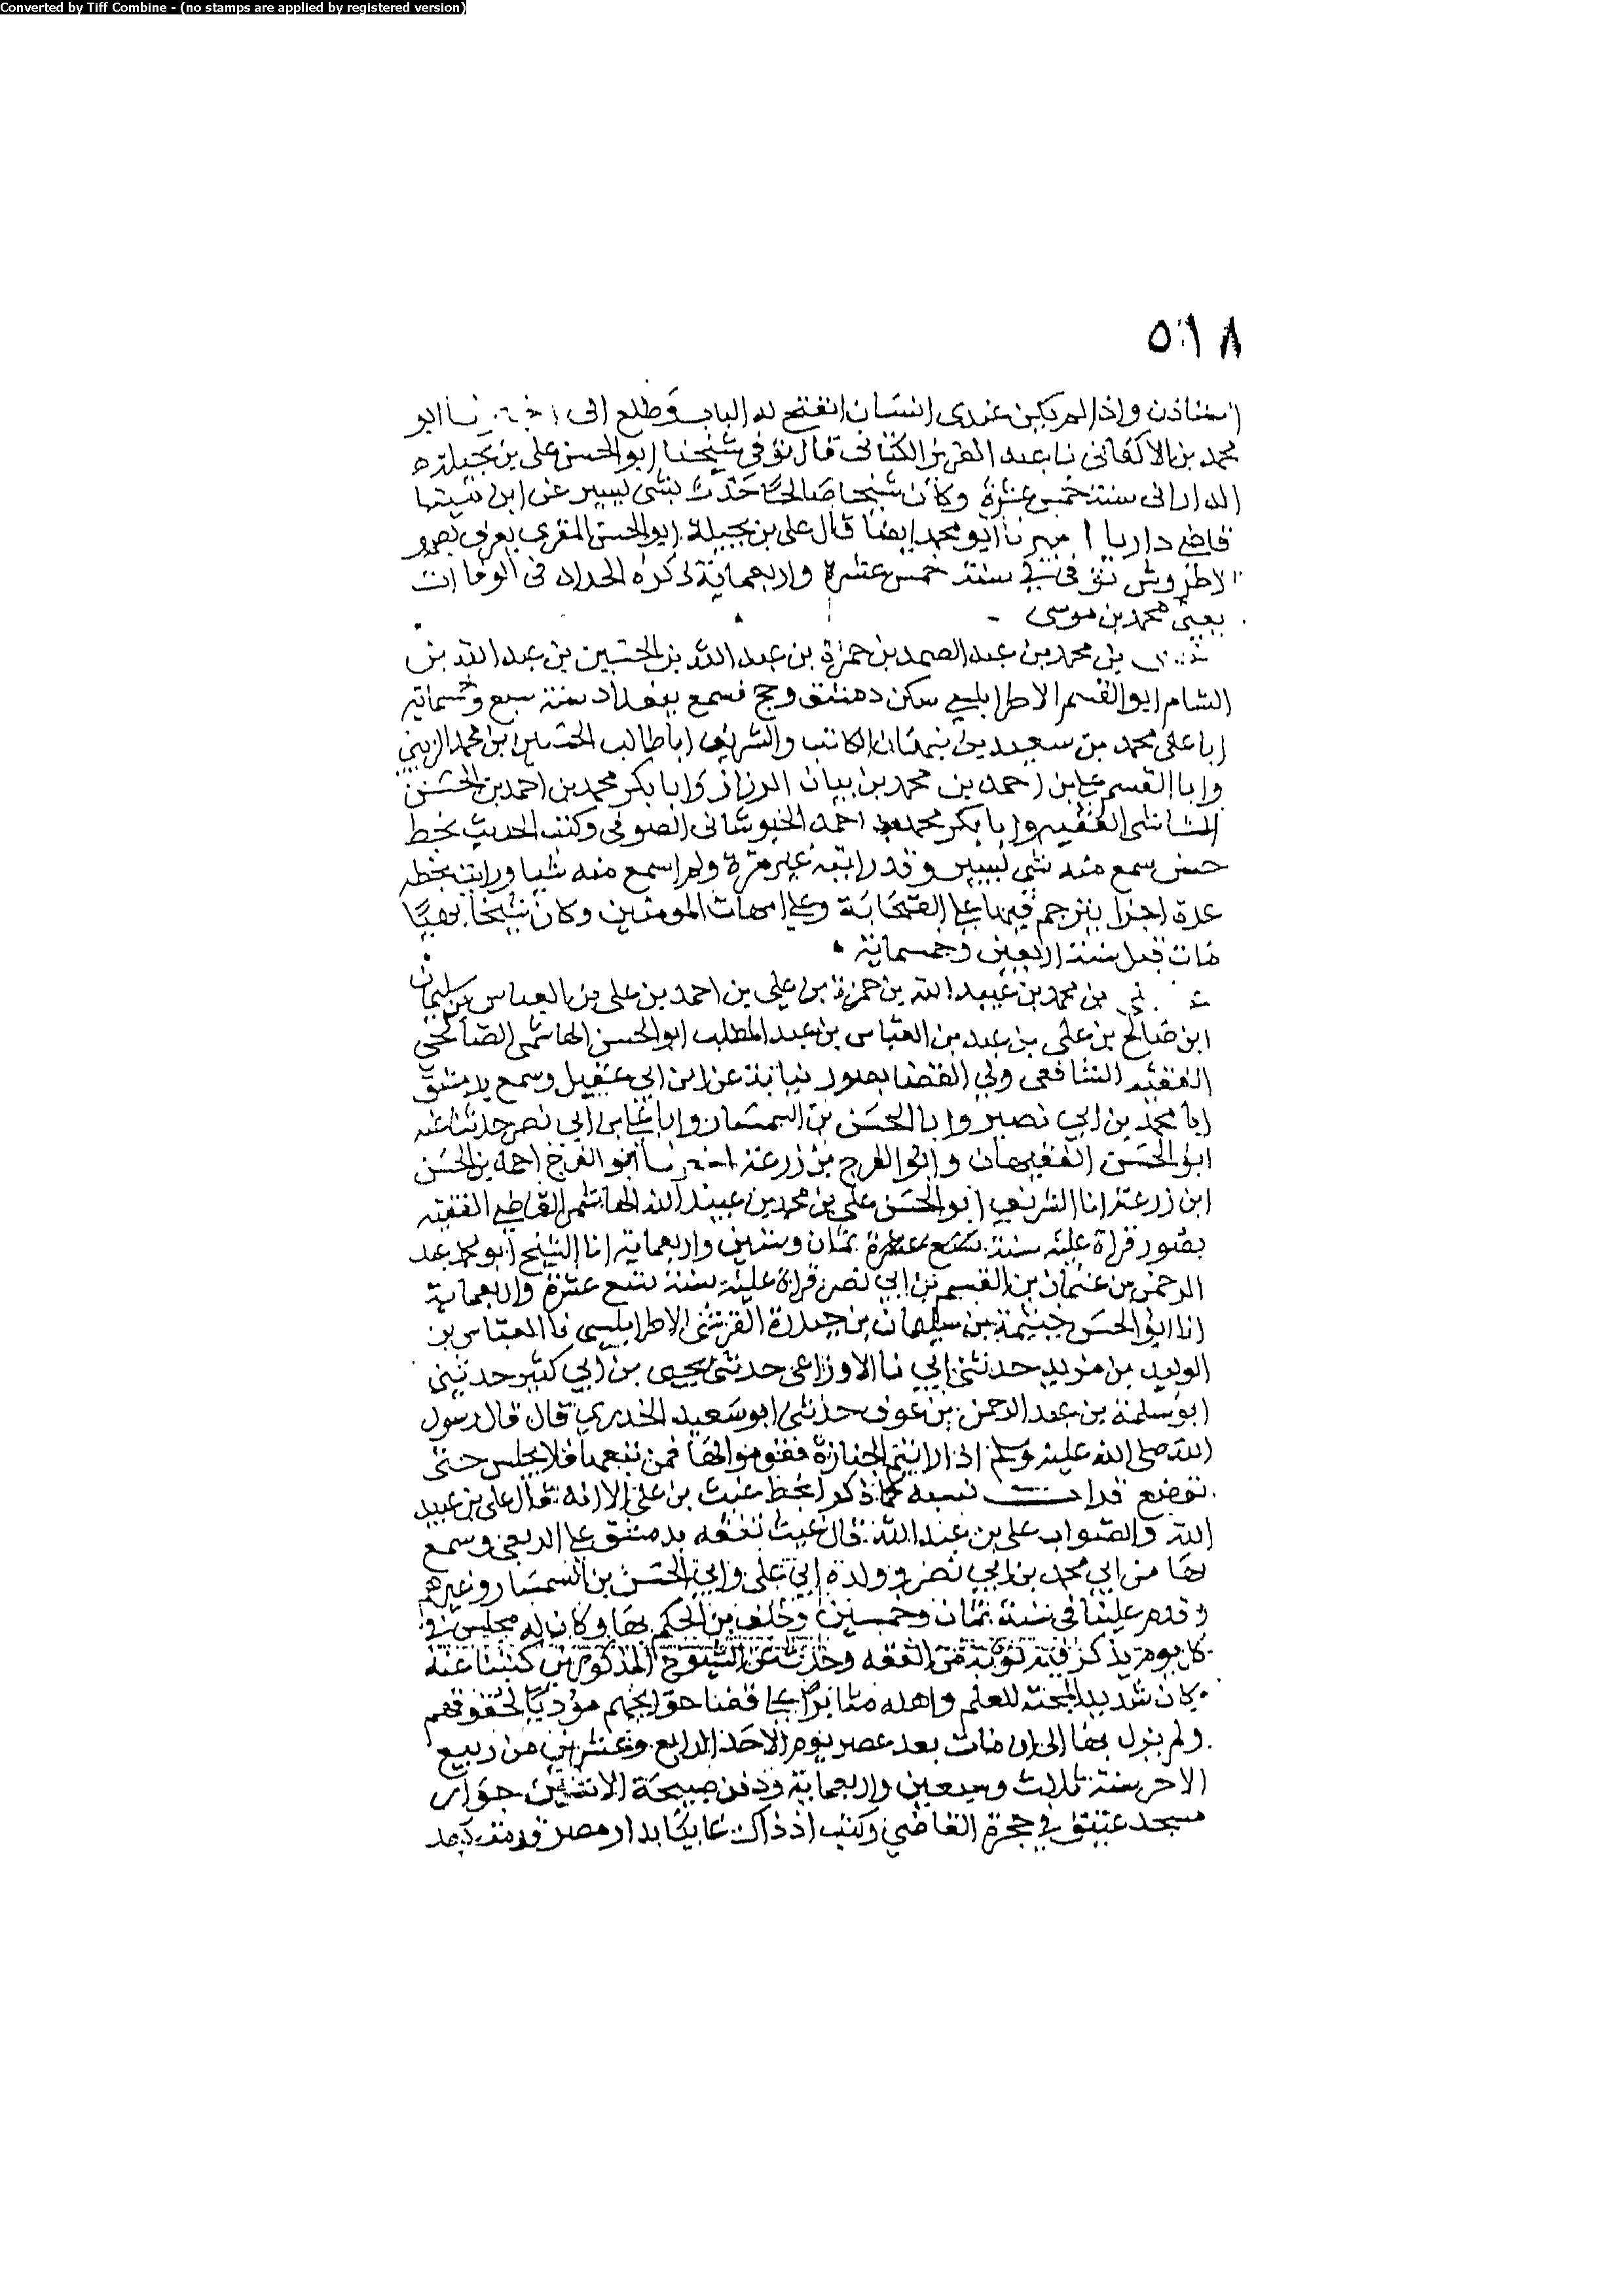 Converted by Tiff Combine - (no stamps are applied by registered version)
٥١٨
استاذن واذا لم يكن عندى انسان انفتح له الباب وطلع الى نا ابو
محمد بن الاكفانى نا عبد العزيز الكتانى قال توفى شيخنا ابو الحسن على بن بجيلة
الدارانى سنة خمس عشرة وكان شيخا صالحا حدث بشى يسير عن ابن
قاضى داريا نا ابو محمد ايضا قال على بن بجيلة ابو الحسن المقرى يعرف
الاطروش توفى فى سنة خمس عشرة واربعماية ذكره الحداد فى الوفاات
يعنى محمد بن موسى
بن محمد بن عبد الصمد بن حمزة بن عبد الله بن الحسين بن عبد الله بن
الشام ابو القسم الاطرابلسى سكن دمشق وحج فسمع ببغداد سنة سبع وخمسماية
ابا على محمد بن سعيد بن نبهان الكاتب والشريف ابا طالب الحسين بن محمد الزينبى
وابا القسم على بن احمد بن محمد بن بيان الرزاز وابا بكر محمد بن احمد بن الحسين
الشاشى الفقيه وابا بكر محمد بن احمد الخبوشانى الصوفى وكتب الحديث بخط
حسن سمع منه شى يسير وقد رايته غير مرة ولم اسمع منه شيا ورايت بخطه
عدة اجزا يترجم فيها على الصحابة وعلى امهات المومنين وكان شيخا بهيا
مات قبل سنة اربعين وخمسماية
بن محمد بن عبيد الله بن حمزة بن على بن احمد بن على بن العباس بن سليمان
ابن صالح بن على بن عبد بن العباس بن عبد المطلب ابو الحسن الهاشمى الصالحى
الفقيه الشافعى ولى القضا بصور نيابة عن ابن ابى عقيل وسمع بدمشق
ابا محمد بن ابى نصير وابا الحسن بن السمسار وابا على بن ابى نصر حدثنا عنه
ابو الحسن الفقيهان وابو الفرج بن زرعة نا ابو الفرج احمد بن الحسن
ابن زرعة انا الشريف ابو الحسن على بن محمد بن عبيد الله الهاشمى القاضى الفقيه
بصور قراة عليه سنة ثمان وستين واربعماية انا الشيخ ابو محمد عبد
الرحمن بن عثمان بن القسم بن ابى نصر قراة عليه سنة تسع عشرة واربعماية
انا ابو الحسن خيثمة بن سليمان بن حيدرة القرشى الاطرابلسى نا العباس بن
الوليد بن مزيد حدثنى ابى نا الاوزاعى حدثنى يحيى بن ابى كثير حدثنى
ابو سلمة بن عبد الرحمن بن عوف حدثنى ابو سعيد الخدرى قال قال رسول
الله صلى الله عليه وسلم اذا رايتم الجنازة فقوموا لها فمن تبعها فلا يجلس حتى
توضع قرات نسبه كما ذكر بخط غيث بن على الا انه قال على بن عبيد
الله والصواب على بن عبد الله قال غيث تفقه بدمشق على الربعى وسمع
بها من ابى محمد بن ابى نصر وولده ابى على وابى الحسن بن السمسار وغيرهم
وقدم علينا فى سنة ثمان وخمسين وخلف بن الحكم بها وكان له مجلس فى
كل يوم يذكر فيه نوبة من الفقه وحدث عن الشيوخ المذكورين كتبنا عنه
وكان شديد المحبة للعلم واهله مثابرا على قضا حوايجهم مؤديا لحقوقهم
ولم يزل بها الى ان مات بعد عصر يوم الاحد الرابع وعشرين من ربيع
الاخر سنة ثلاث وسبعين واربعماية ودفن صبيحة الاثنين جوار
مسجد عتيق فى حجرة القاضى وكنت اذ ذاك غايبا بدار مصر